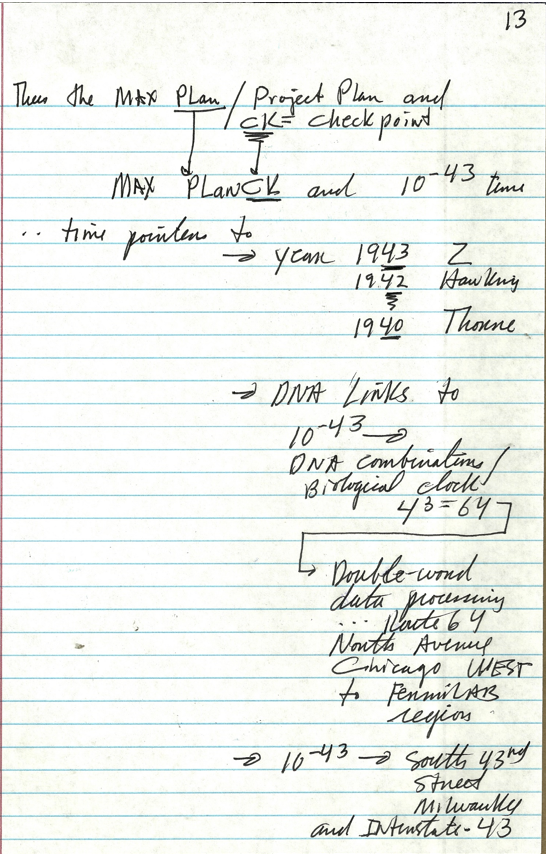 13
Thus the MAX PLan / Project Plan and
CK= checkpoint
MAX PLanCK and 10-43 time
.. time pointers to
→ year 1943 Z
1942 Hawking
1940 Thorne
→ DNA Links to
10-43 →
DNA combinations /
Biological clock
43=64
Double-word
data processing
... Route 64
North Avenue
Chicago WEST
to FermiLAB
region
→ 10-43 → South 43rd
Street
Milwaukee
and Interstate-43